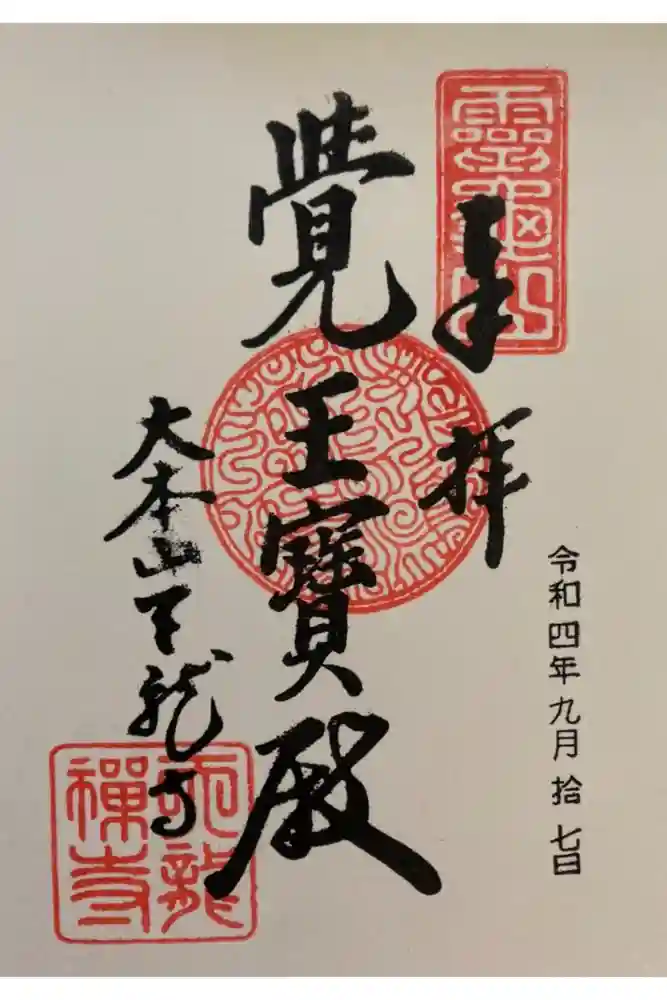 靈龜山
奉拝
令和四年九月拾七日
覺王寶殿
大本山天龍寺
天龍
禅寺